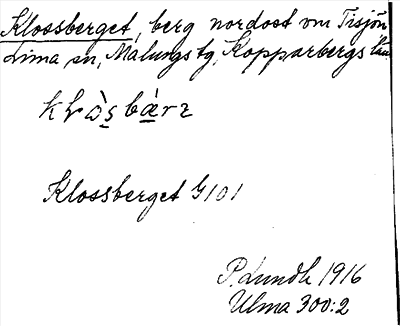 Klossberget, berg nordost om Tisjön
Lima sn, Malungs tg, Kopparbergs län
Klossberget G101
P. Lundh 1916
Ulma 300:2